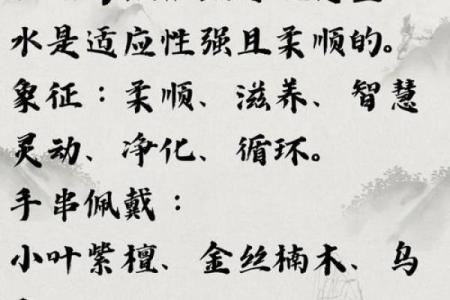 水是适应性强且柔顺的。
象征：柔顺、滋养、智慧
灵动、净化、循环。
手串佩戴：
小叶紫檀、金丝楠木、乌